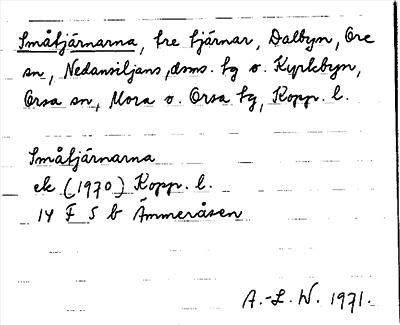 Småtjärnarna, tre tjärnar, Dalbyn, Ore
sn, Nedansiljans dsms. tg o. Kyrkbyn,
Orsa sn, Mora o. Orsa tg, Kopp. l.
Småtjärnarna
ek (1970) Kopp. l.
14 F 5 b Ämmeråsen
A.-L. W. 1971.